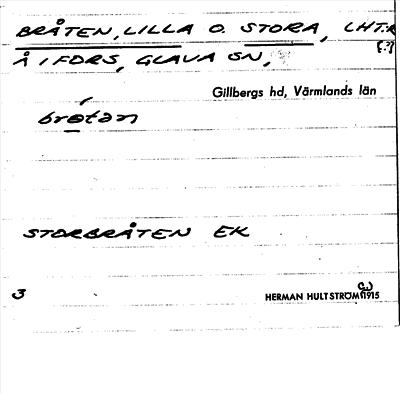 BRÅTEN, LILLA O. STORA, LHT:R
(?)
Å I FDRS, GLAVA SN,
Gillbergs hd, Värmlands län
brotan
STORBRÅTEN EK
3
HERMAN HULTSTRÖM 1915